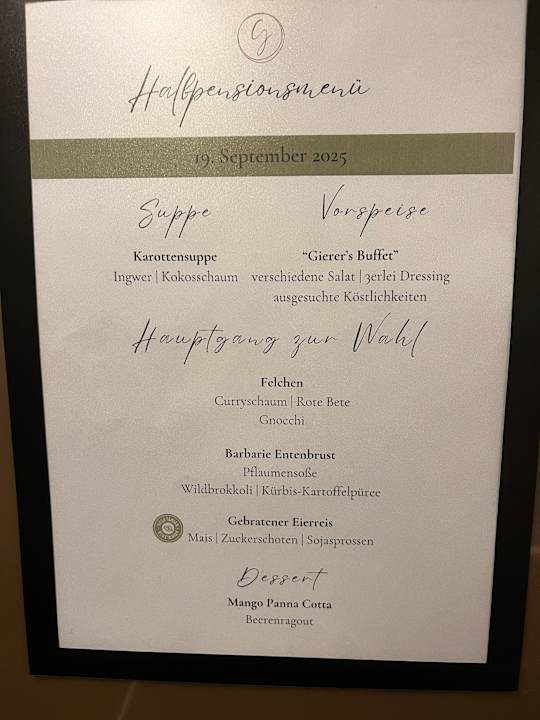 G
Halbpensionsmenü
19. September 2025
Suppe
Karottensuppe
Ingwer | Kokosschaum
Vorspeise
“Gierer’s Buffet”
verschiedene Salat | 3erlei Dressing
ausgesuchte Köstlichkeiten
Hauptgang zur Wahl
Felchen
Curryschaum | Rote Bete
Gnocchi
Barbarie Entenbrust
Pflaumensoße
Wildbrokkoli | Kürbis-Kartoffelpüree
Gebratener Eierreis
Mais | Zuckerschoten | Sojasprossen
Dessert
Mango Panna Cotta
Beerenragout